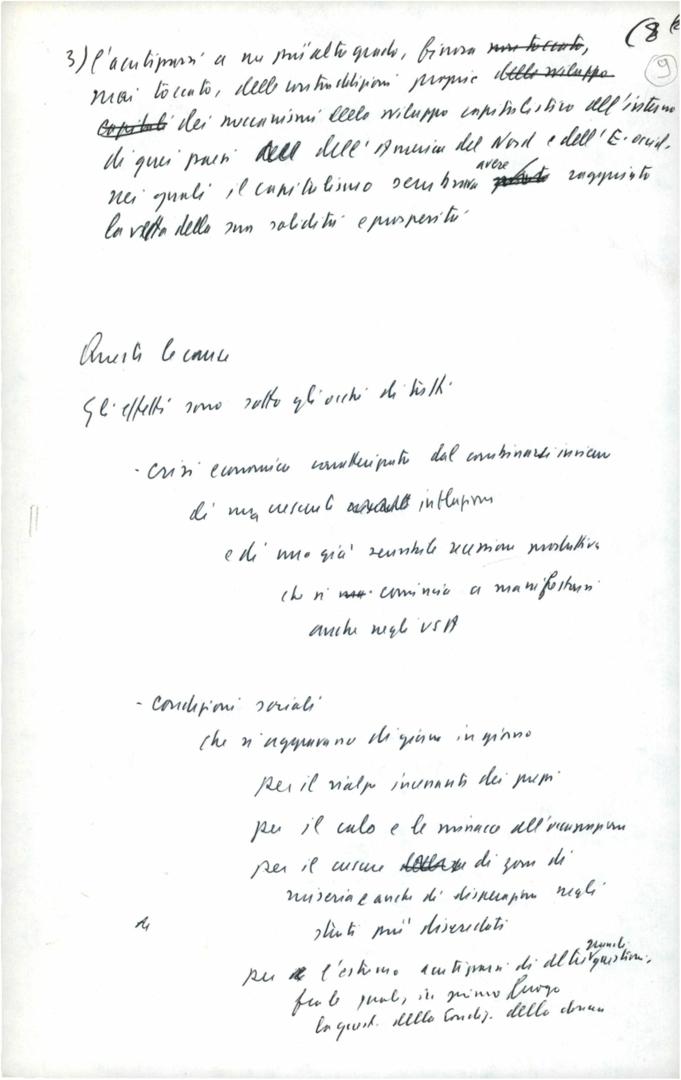 (8
9
3) l'acutizzarsi a un più alto grado, finora non toccato,
mai toccato, delle contraddizioni proprie dello sviluppo
capitali dei meccanismi dello sviluppo capitalistico all'interno
di quei paesi dell'America del Nord e dell'E. occid.
nei quali il capitalismo sembrava avere raggiunto
la vetta della sua solidità e prosperità
Questi le cause
Gli effetti sono sotto gli occhi di tutti.
- crisi economica caratterizzata dal combinarsi insieme
di una crescente inflazione
e di una già sensibile recessione produttiva
che si comincia a manifestarsi
anche negli USA
- condizioni sociali
che si aggravano di giorno in giorno
per il rialzo incessante dei prezzi
per il calo e le minacce all'occupazione
per il crescere di zone di
miseria e anche di disperazione negli
strati più diseredati
per l'estremo acutizzarsi di altre grandi questioni,
fra le quali, in primo luogo
la quest. della condiz. della donna